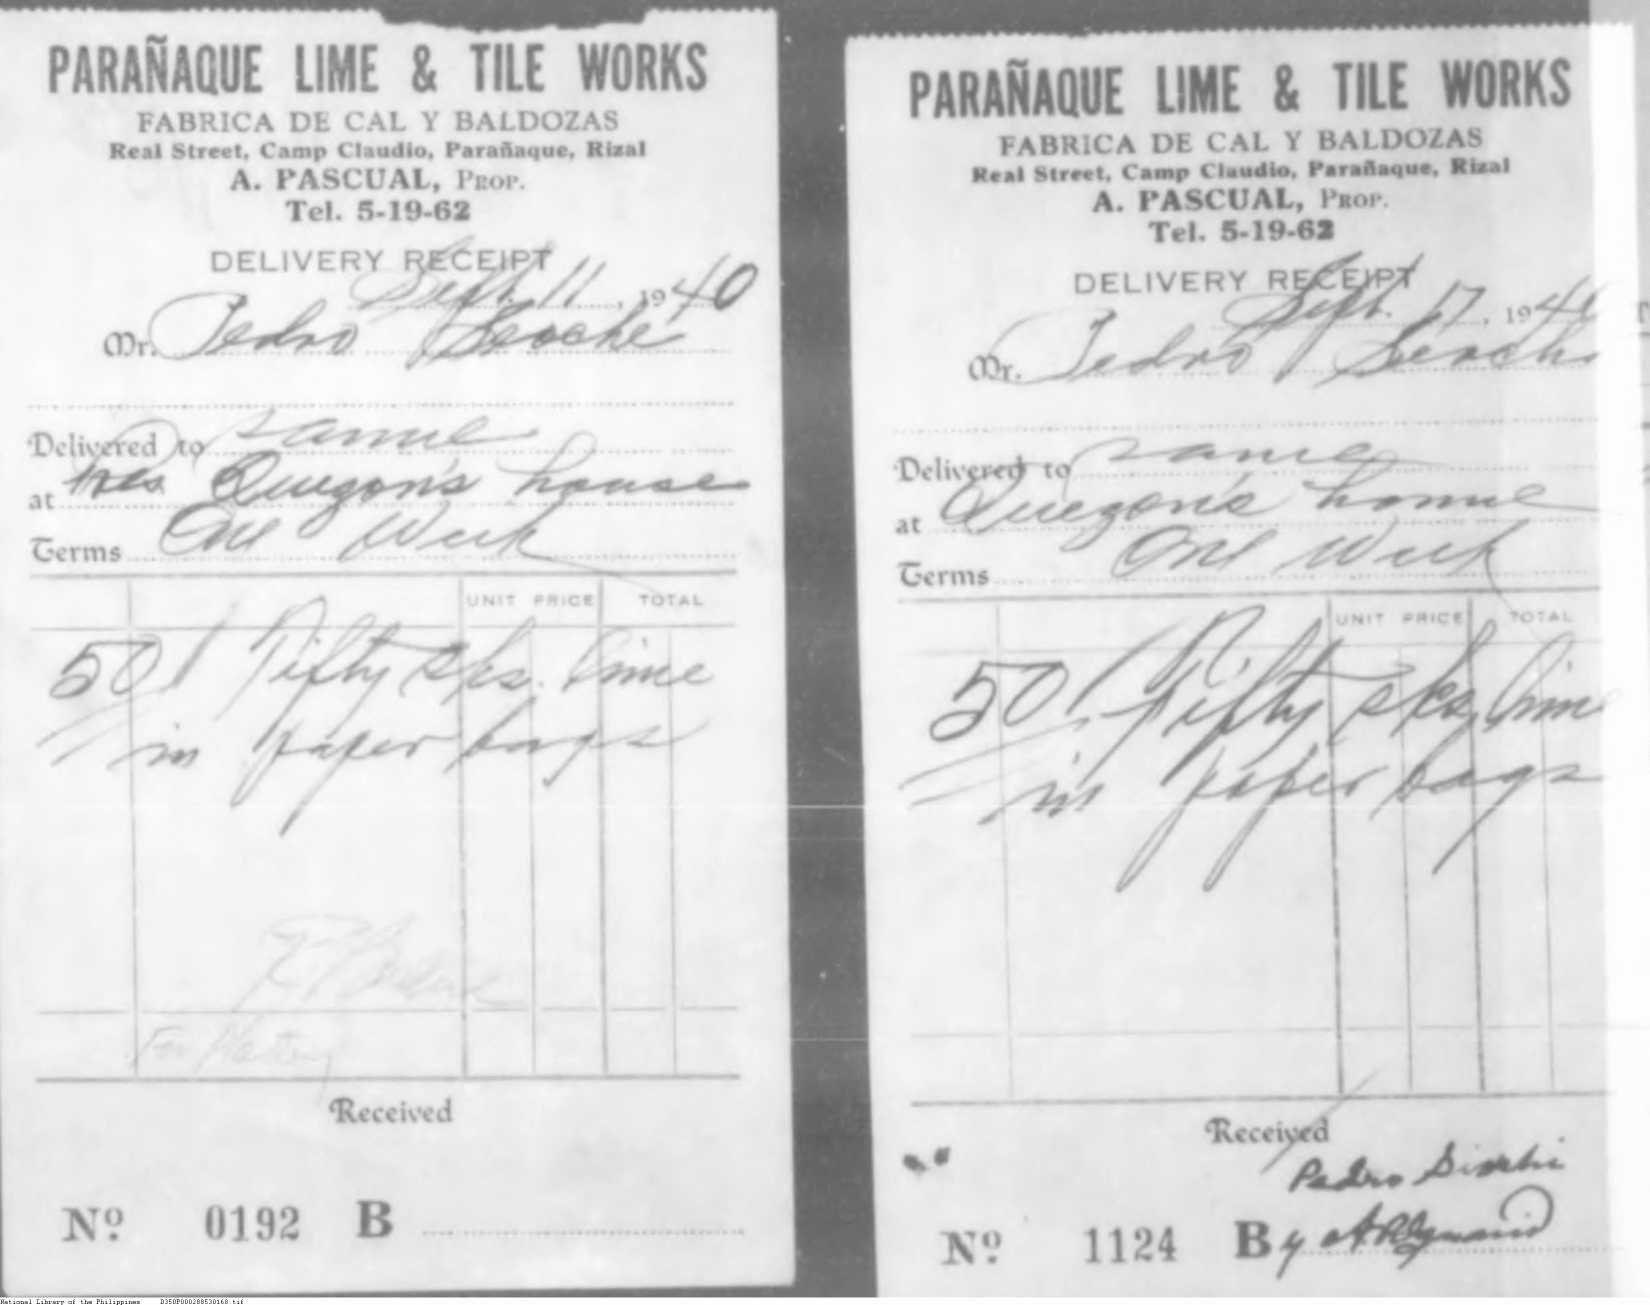 PARAÑAQUE LIME & TILE WORKS
FABRICA DE CAL Y BALDOZAS
Real Street, Camp Claudio, Parañaque, Rizal
A. PASCUAL, PROP.
Tel. 5-19-62
DELIVERY RECEIPT
Sept. 11, 1940
Mr. Pedro
Delivered to same
at Pres. Quezon's house
Terms One Week
UNIT PRICE TOTAL
50 Fifty sks. lime
in paper bags
For
Received
Nº 0192 B
PARAÑAQUE LIME & TILE WORKS
FABRICA DE CAL Y BALDOZAS
Real Street, Camp Claudio, Parañaque, Rizal
A. PASCUAL, PROP.
Tel. 5-19-62
DELIVERY RECEIPT
Sept. 17, 194
Mr. Pedro
Delivered to same
at Quezon's home
Terms One Week
UNIT PRICE TOTAL
50 Fifty sks lim
in paper bags
Received
Pedro
Nº 1124 By
National Library of the Philippines D350P000288530168.tif